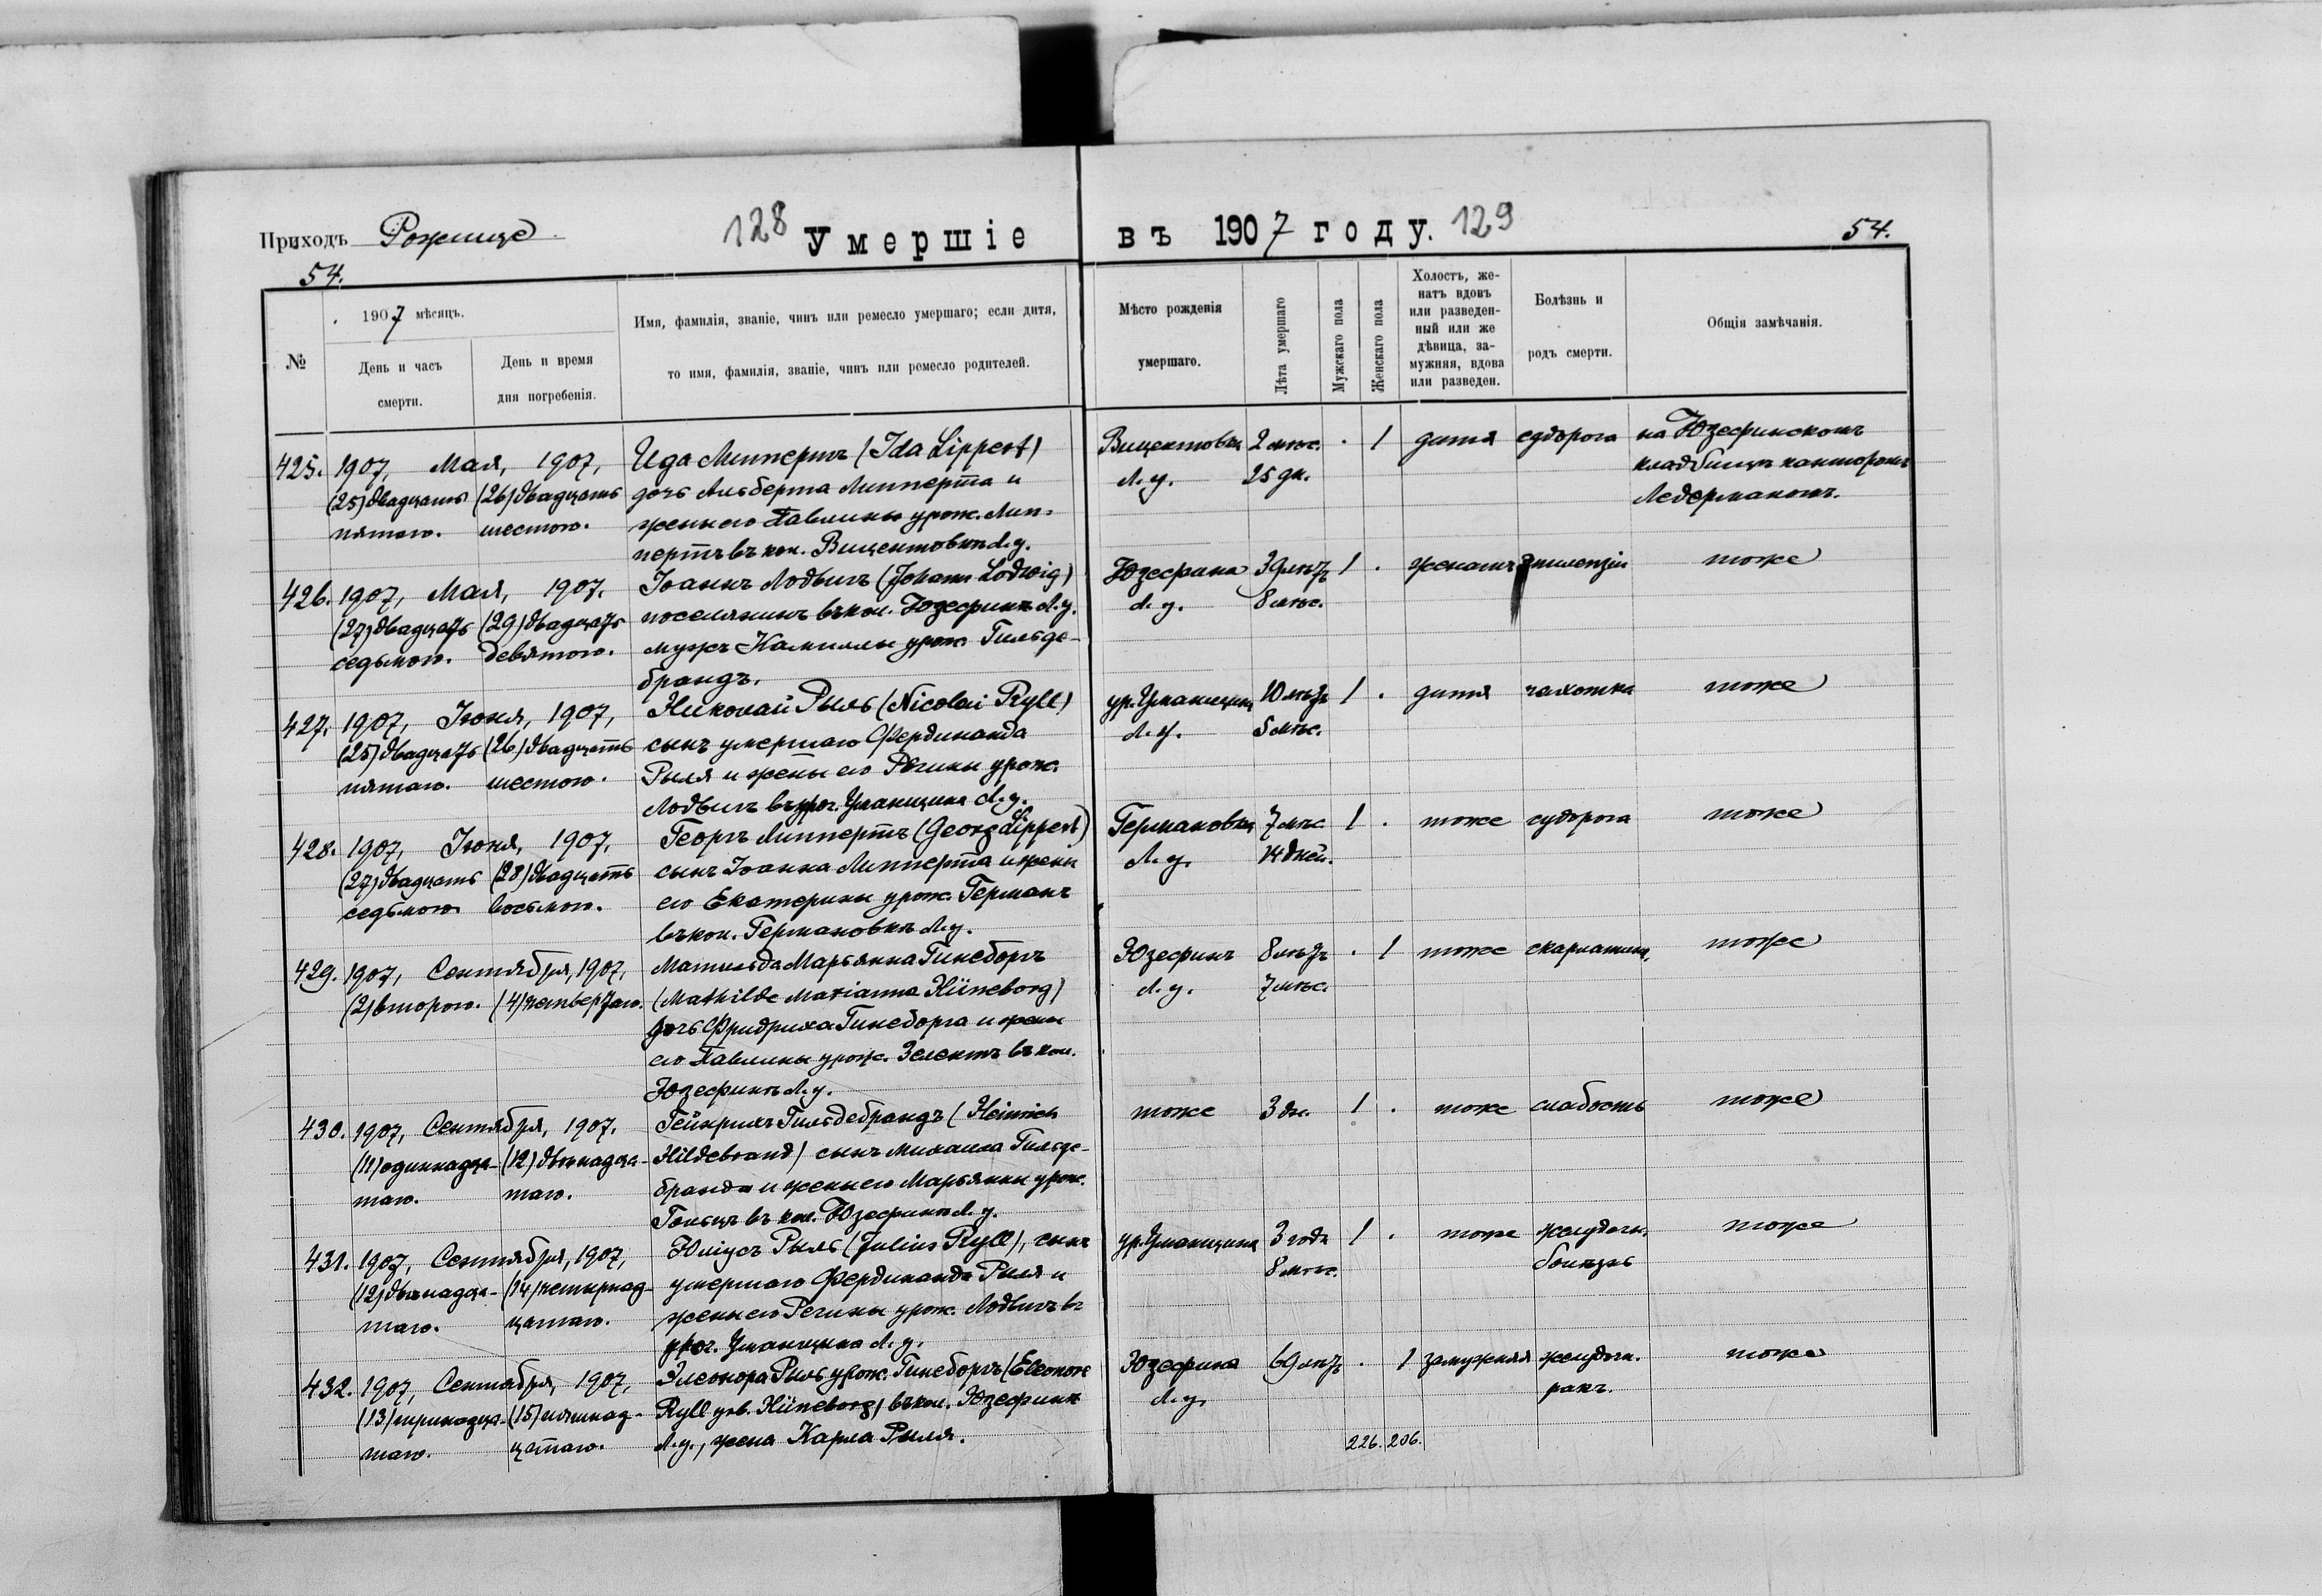 Приходъ Рожище
128 Умершіе въ 1907 году. 129
54.
54.
№
1907 мѣсяцъ.
День и часъ
смерти.
День и время
дня погребенія.
Имя, фамилія, званіе, чинъ или ремесло умершаго; если дитя,
то имя, фамилія, званіе, чинъ или ремесло родителей.
Мѣсто рожденія
умершаго.
Лѣта умершаго
Мужскаго пола
Женскаго пола
Холостъ, же-
натъ вдовъ
или разведен-
ный или же
дѣвица, за-
мужняя, вдова
или разведен.
Болѣзнь и
родъ смерти.
Общія замѣчанія.
425. 1907, Мая, 1907, Ида Липпертъ (Ida Lippert) Вицентовка 2 мѣс. . 1 дитя судорога на Юзефинскомъ
(25) двадцать (26) двадцать дочь Альберта Липперта и Л. у. 25 дн. кладбищѣ канторомъ
пятаго. шестого. жены его Павлины урож. Лип- Ледерманомъ.
пертъ въ кол. Вицентовкѣ Л. у.
426. 1907, Мая, 1907. Іоаннъ Лодвигъ (Johann Lodwig) Юзефина 39 лѣтъ 1 . женатъ эпилепзіи тоже
(27) двадцать (29) двадцать поселянинъ въ кол. Юзефинѣ Л. у. Л. у. 8 мѣс.
седьмого. девятого. мужъ Камиллы урож. Гильде-
брандъ.
427. 1907, Іюня, 1907, Николай Рыль (Nicolai Ryll) ур. Уманщина 10 лѣтъ 1 . дитя чахотка тоже
(25) двадцать (26) двадцать сынъ умершаго Фердинанда Л. у. 5 мѣс.
пятаго. шестого. Рыля и жены его Регины урож.
Лодвигъ въ уроч. Уманщина Л. у.
428. 1907, Іюня, 1907. Георгъ Липпертъ (Georg Lippert) Германовка 7 мѣс. 1 . тоже судорога тоже
(27) двадцать (28) двадцать сынъ Іоанна Липперта и жены Л. у. 14 дней.
седьмого восьмого. его Екатерины урож. Германъ
въ кол. Германовкѣ Л. у.
429. 1907, Сентября, 1907, Матильда Марьянна Гинеборгъ Юзефинъ 8 лѣтъ . 1 тоже скарлатина. тоже
(2) второго. (4) четвертаго. (Mathilde Marianna Hüneborg) Л. у. 7 мѣс.
дочь Фридриха Гинеборга и жены
его Павлины урож. Зелентъ въ кол.
Юзефинѣ Л. у.
430. 1907, Сентября, 1907. Гейнрихъ Гильдебрандъ (Heinrich тоже 3 дн. 1 . тоже слабость тоже
(11) одиннадца- (12) двѣнадца- Hildebrand) сынъ Михаила Гильде-
таго. таго. бранда и жены его Марьянны урож.
въ кол. Юзефинѣ Л. у.
431. 1907, Сентября, 1907, Юліусъ Рыль (Julius Ryll), сынъ ур. Уманщина 3 года 1 . тоже желудочн. тоже
(12) двѣнадца- (14) четырнад- умершаго Фердинанда Рыля и 8 мѣс. болѣзнь
таго. цатаго. жены его Регины урож. Лодвигъ въ
уроч. Уманщина Л. у.
432. 1907, Сентября, 1907, Элеонора Рыль урож. Гинеборгъ (Eleonore Юзефина 69 лѣтъ . 1 замужняя желудочн. тоже
(13) тринадца- (15) пятнад- Ryll geb. Hüneborg) въ кол. Юзефинѣ Л. у. ракъ.
таго. цатаго. Л. у., жена Карла Рыля.
226. 206.